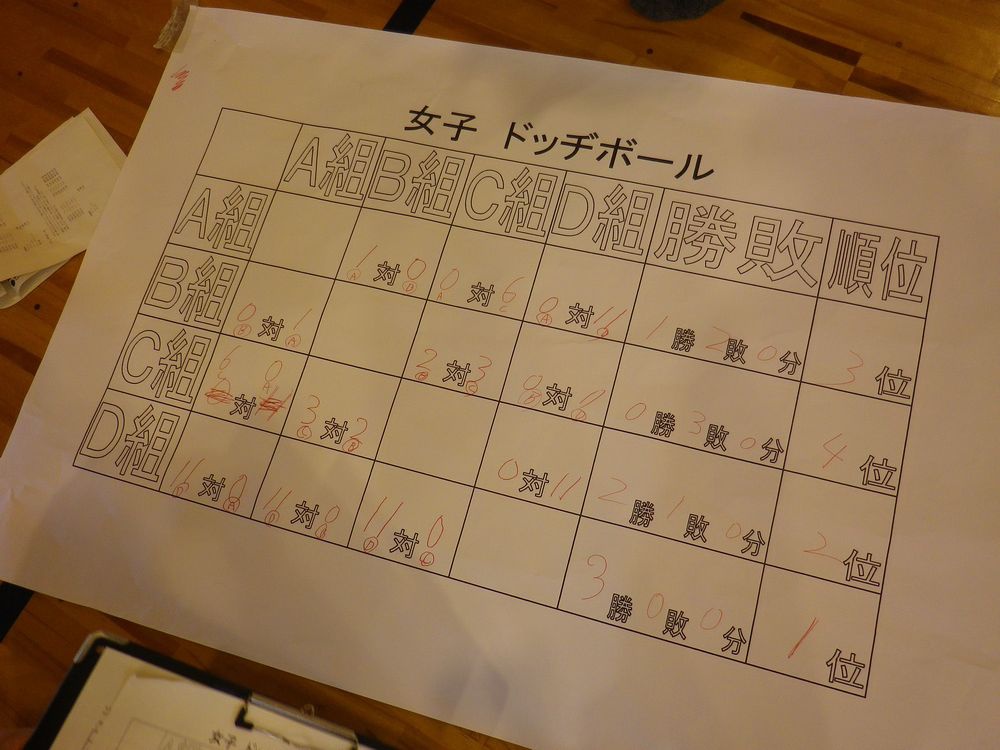 女子 ドッヂボール
A組 B組 C組 D組 勝敗 順位
A組 1 対 0 0 対 6 0 対 11 1 勝 2 敗 0 分 3 位
B組 0 対 1 2 対 3 0 対 11 0 勝 3 敗 0 分 4 位
C組 6 対 0 3 対 2 0 対 11 2 勝 1 敗 0 分 2 位
D組 11 対 0 11 対 0 11 対 0 3 勝 0 敗 0 分 1 位